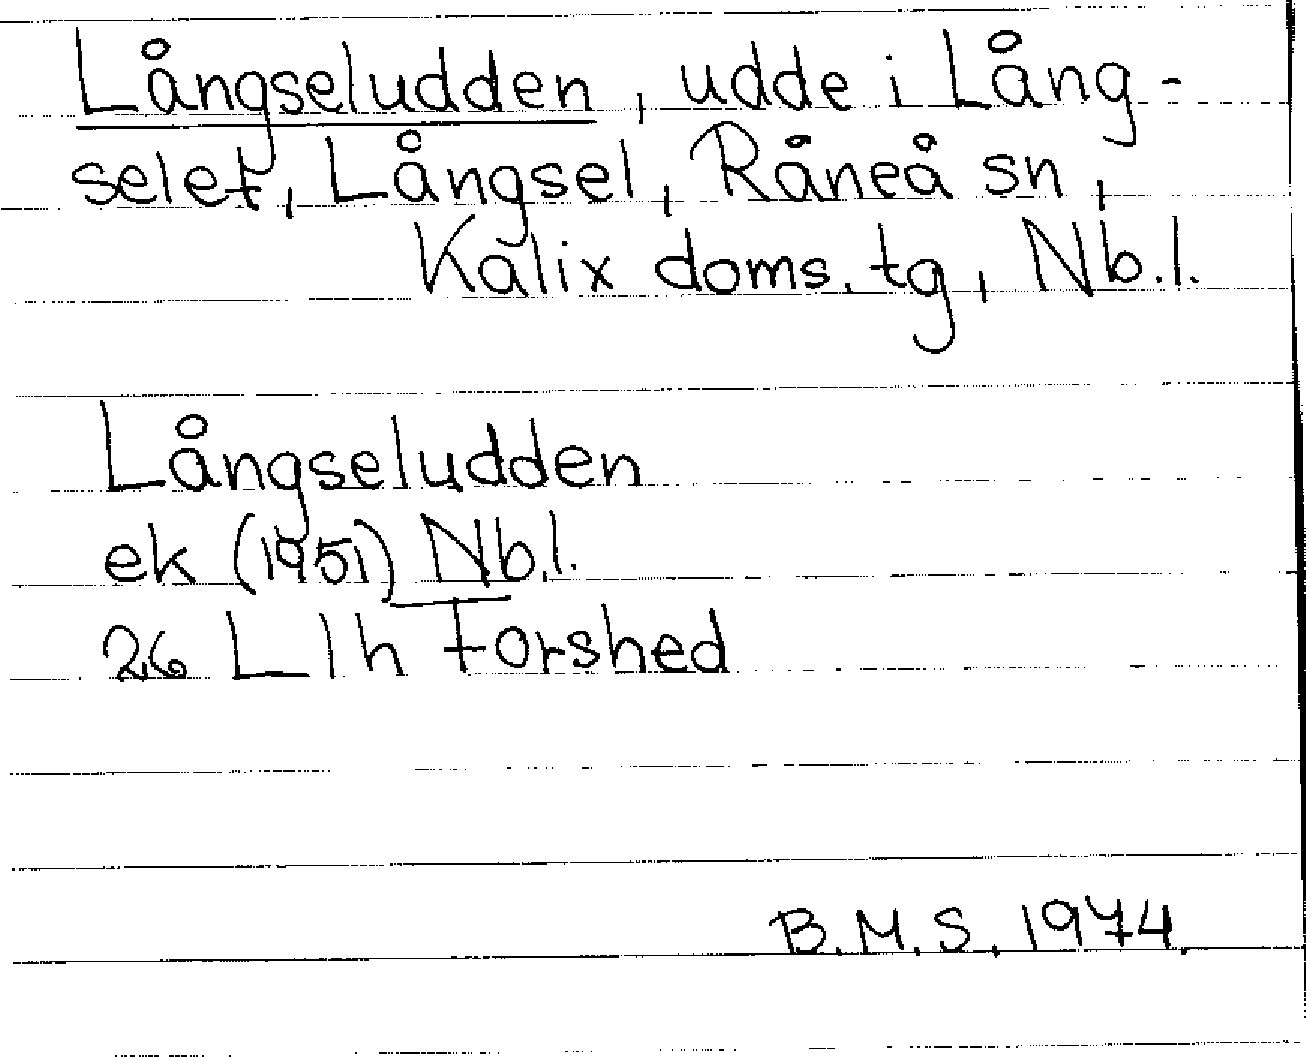 Långseludden, udde i Lång-
selet, Långsel, Råneå sn,
Kalix doms. tg, Nb.l.
Långseludden
ek (1951) Nb.l.
26 L l h Forshed
B.M.S. 1974.